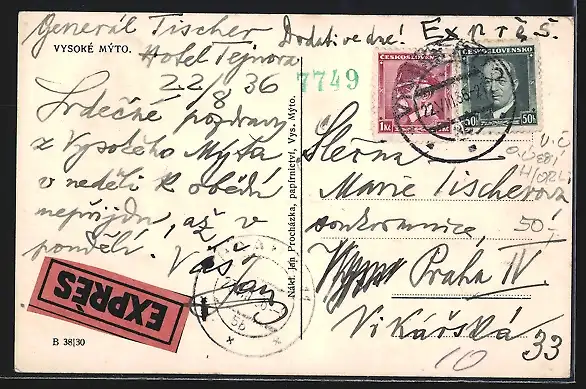 Generál Fischer
Hotel Tejnora
VYSOKÉ MÝTO.
22/8 36
Srdečné pozdravy
z Vysokého Mýta
v neděli k obědu
nepřijdu, až v
pondělí. Váš
Jan
EXPRÈS
B 38|30
Nákl. Jan Procházka, papírnictví, Vys. Mýto.
Dodati ve dne! Exprès.
7749
ČESKOSLOVENSKO
1Kč
ČESKOSLOVENSKO
50h 50h
22.VIII.36
Slečna
Marie Fischerová
soukromnice
Praha IV
Vikářská 33
10
50